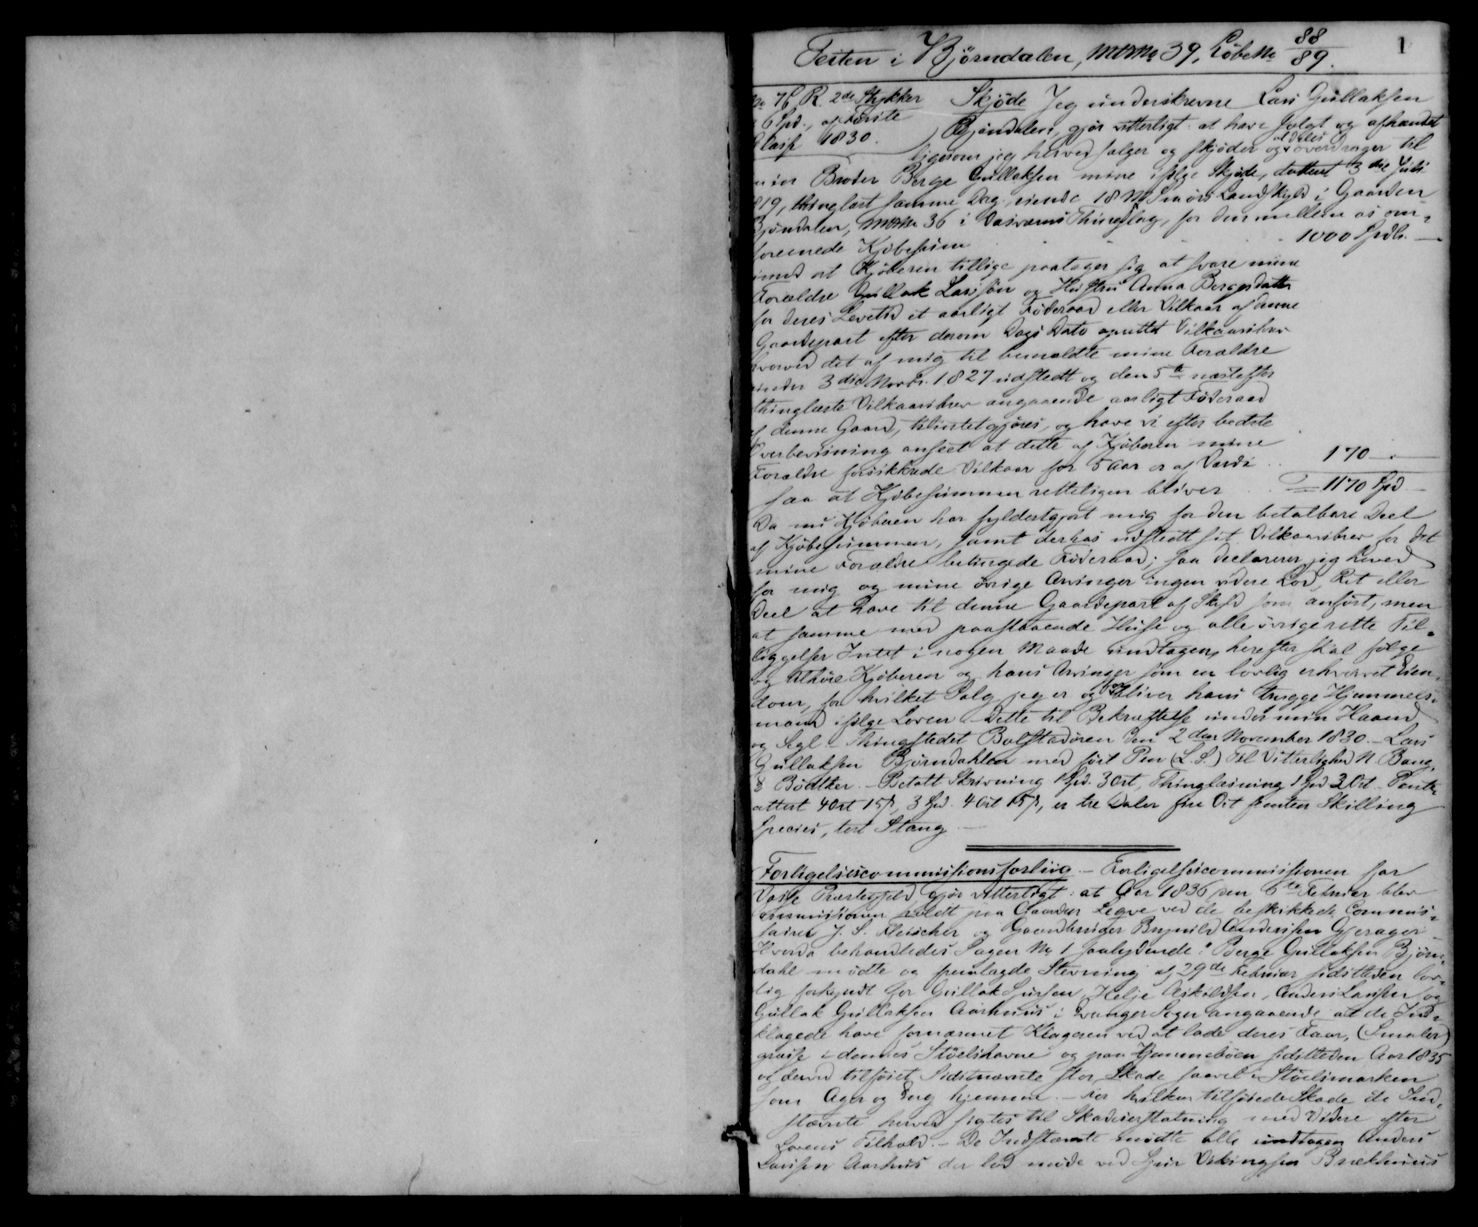 Teiten i Bjørndalen, MtrNo 39, LøbeNo 88/89. 1
No 76 R. 2de Stykker
6 Spd. af første
Classe 1830.
Skjøde Jeg underskrevne Lars Gullaksen
Bjørndalen, gjør vitterligt at have solgt og afhændet
ligesom jeg herved sælger og skjøder og aldeles overdrager til
min Broder Berge Gullaksen mine ifølge Skjøde, dateret 3die Juli
1819, thinglæst samme Dag, eiende 18 M Smørs Landskyld i Gaarden
Bjørndalen, MtrNo 36 i Vasværens Thinglag, for den mellem os om-
forenede Kjøbesum 1000 Spdlr.
imod at Kjøberen tillige paatager sig at svare mine
Forældre Gullak Larssøn og Hustru Anna Bergesdatter
for deres Levetid et aarligt Føderaad eller Vilkaar af denne
Gaardepart efter derom Dags Dato oprettet Vilkaarsbrev
hvorved det af mig til bemeldte mine Forældre
under 3die Novbr. 1827 udstedt og den 5te næstefter
thinglæste Vilkaarsbrev angaaende aarligt Føderaad
af denne Gaard, tilintetgjøres, og have vi efter bedste
Overbevisning anseet at dette af Kjøberen mine
Forældre forsikkrede Vilkaar for 5 Aar er af Værdi 170
saa at Kjøbesummen retteligen bliver 1170 Spd
Da nu Kjøberen har fyldestgjort mig for den betalbare Deel
af Kjøbesummen, samt derhos udstedt sit Vilkaarsbrev for det
mine Forældre betingede Føderaad; saa declarerer jeg herved
for mig og mine øvrige Arvinger ingen videre Lod, Ret eller
Deel at have til denne Gaardepart af Skyld som anført, men
at samme med paastaaende Huse og alle øvrige rette Til-
liggelser Intet i nogen Maade undtagen, herefter skal følge
og tilhøre Kjøberen og hans Arvinger som en lovlig erhvervet Eien-
dom, for hvilket Salg jeg er og bliver hans trygge Hjemmels-
mand ifølge Loven. Dette til Bekræftelse under min Haand
og Segl. Thingstedet Bolstadøren den 2den November 1830. Lars
Gullaksen Bjørndahlen med ført Pen (L.S.) Til Vitterlighed N. Bang,
Bødtker. Betalt Skrivning 1 Spd. 3 Ort, Thinglæsning 1 Spd 3 Ort. Pante
attest 4 Ort 15 s, 3 Spd. 4 Ort 15 s, er tre Daler fire Ort femten Skilling
Species, test Stang
Forligelsescommissionsforliig. Forligelsescommissionen for
Voss Præstegjeld gjør vitterligt: at Aar 1836 den 6te Februar blev
Commissionen holdt paa Gaarden Legve ved de beskikkede Commis-
sairer J. S. Fleischer og Gaardbruger Brynild Andersen Gjerager
Hvorda behandledes Sagen No 1 saalydende: Berge Gullaksen Bjørn-
dahl mødte og fremlagde Stevning af 29de Februar sidstleden lov-
lig forkyndt for Gullak Sjursen, Helje Askildsen, Anders Larsen og
Gullak Gullaksen Aarhuus i Evanger Sogn angaaende at de Ind-
klagede have fornærmet Klageren ved at lade deres Faar, (Smaler)
græsse i dennes Støelshavne og paa Hjemmebøen sidstleden Aar 1835
og derved tilføiet Sidstnævnte stor Skade saavel i Støelsmarken
som Ager og Eng hjemme. For hvilken tilføiede Skade de Ind-
stævnte herved sigtes til Skadeserstatning med Videre efter
Lovens Tilhold. De Indstævnte mødte alle undtagen Anders
Larsen Aarhus der lod møde ved Sjur Vikingsen Brækhuus